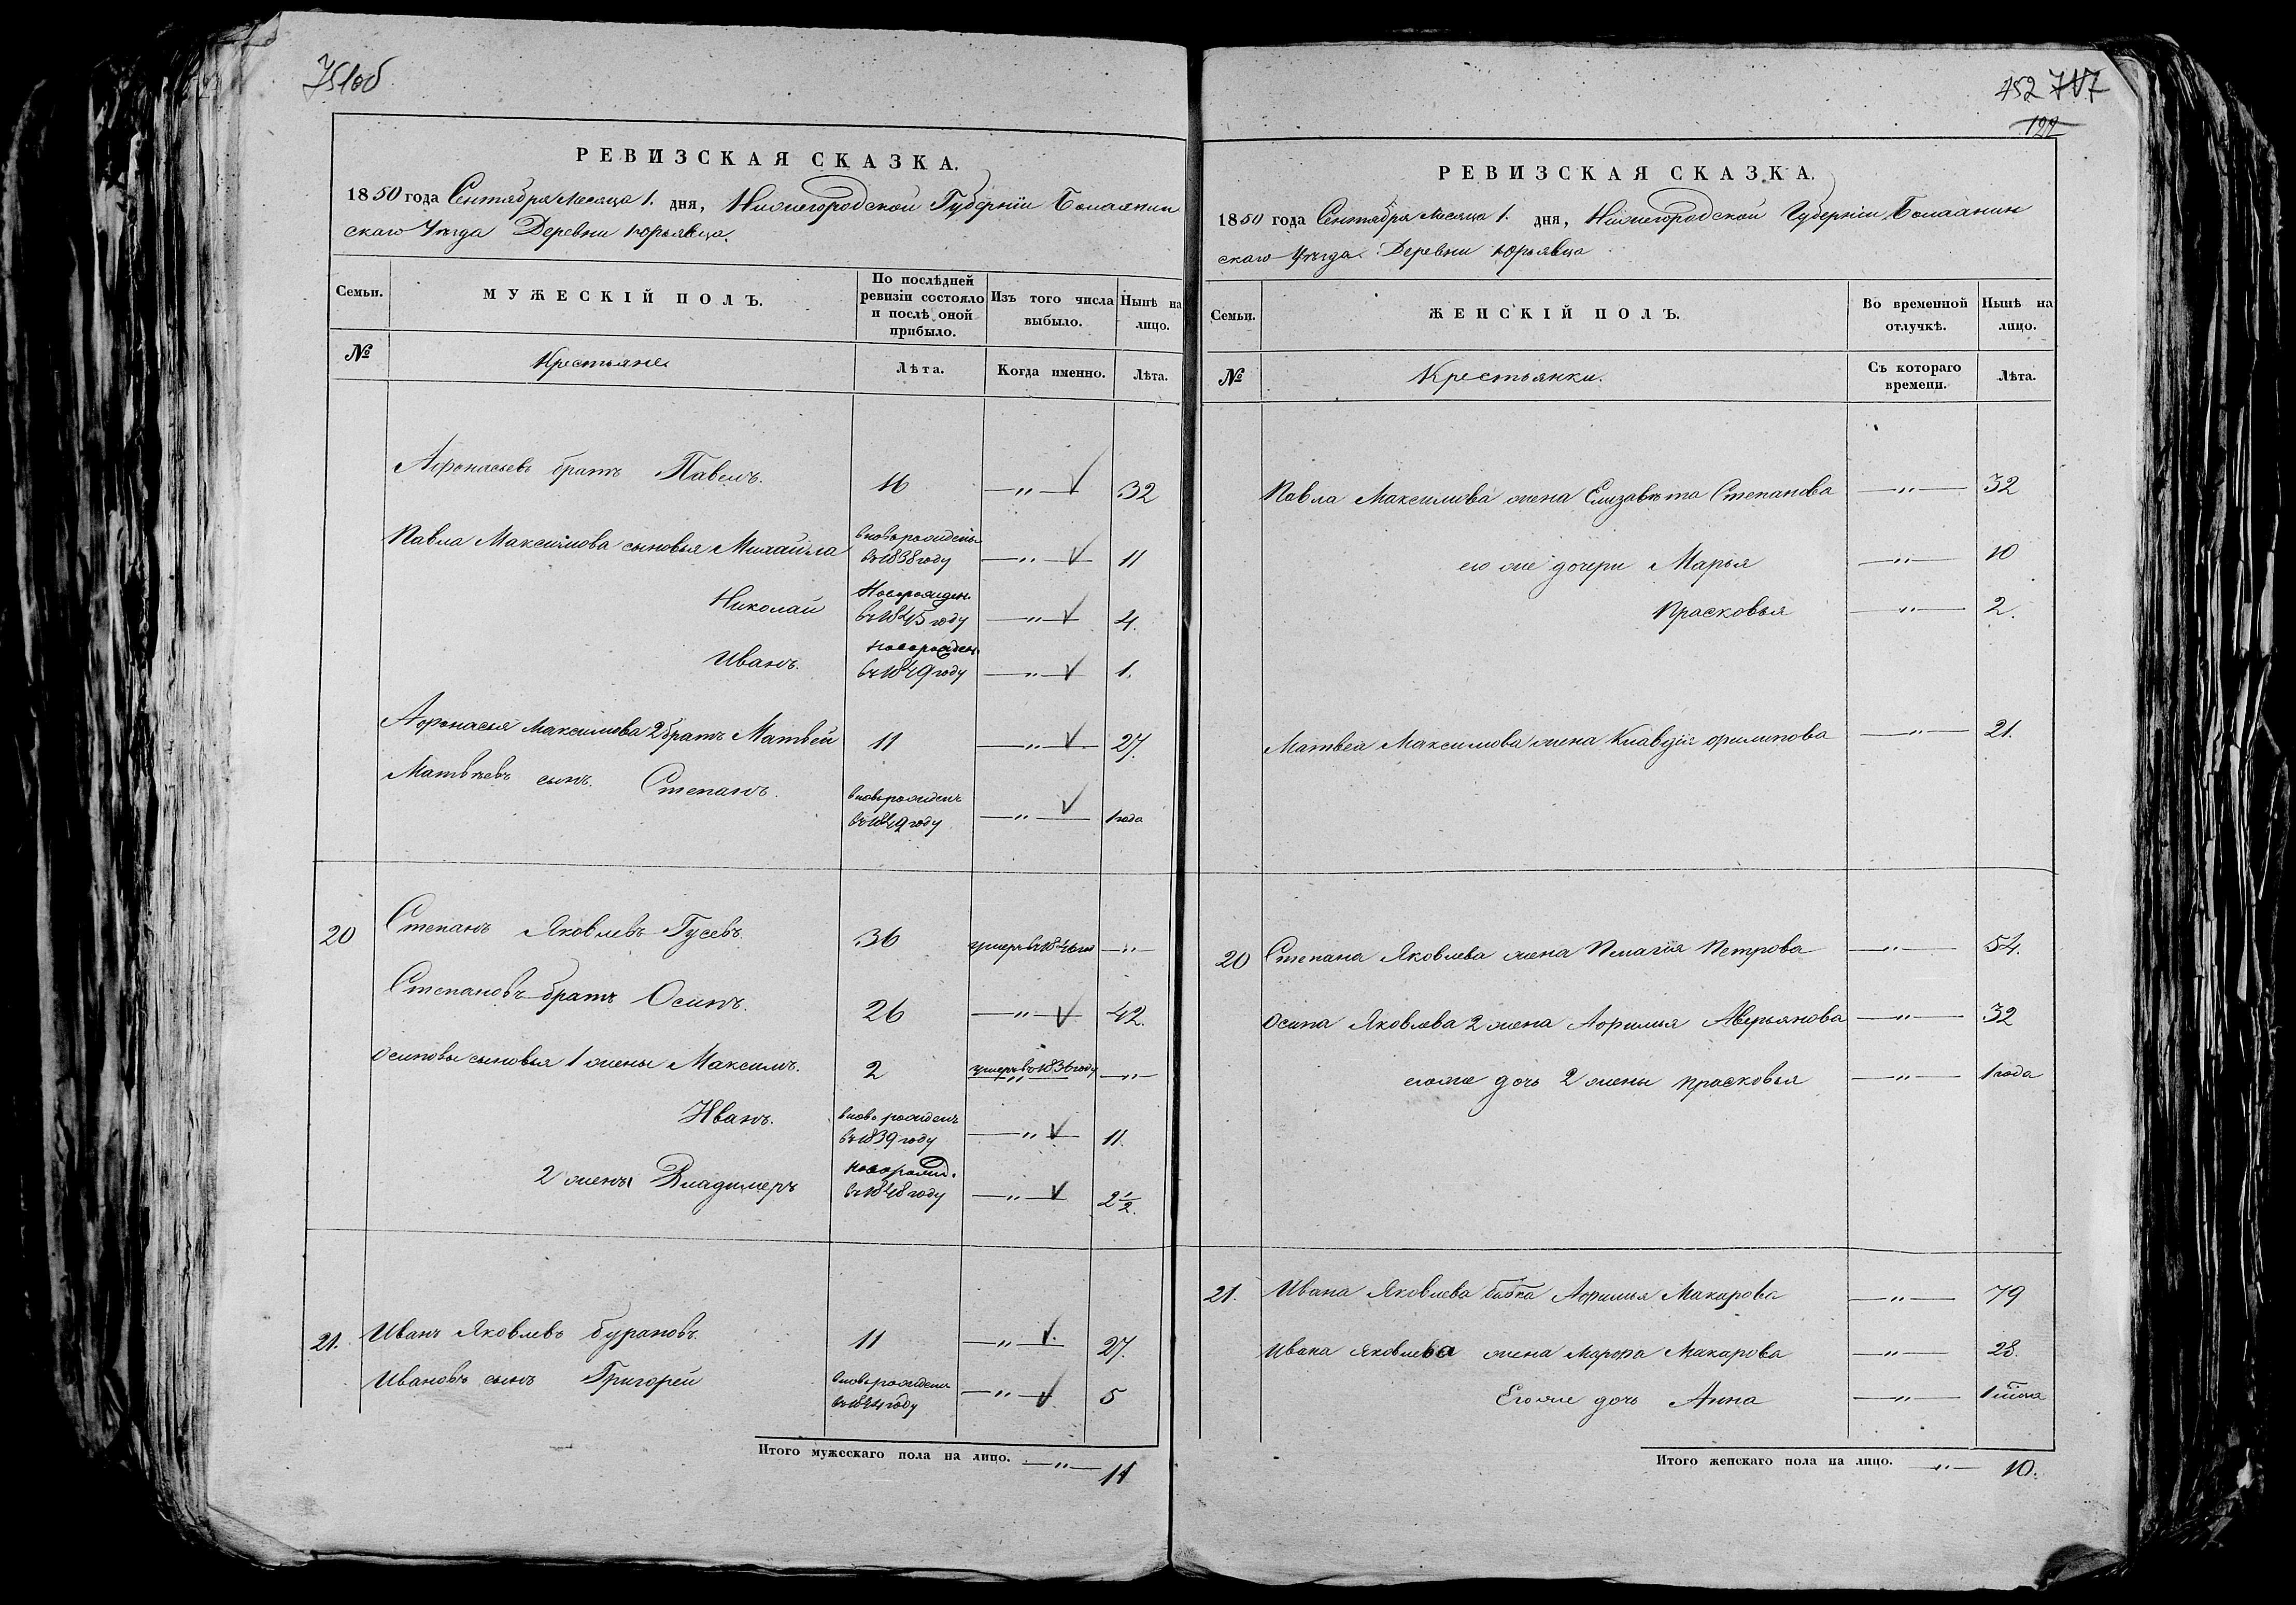 751об
РЕВИЗСКАЯ СКАЗКА.
1850 года Сентября Месяца 1. дня, Нижегородской Губерніи Балахнин
скаго Уезда Деревни Юрьевца.
Семьи.
МУЖЕСКІЙ ПОЛЪ.
По послѣдней ревизіи состояло и послѣ оной прибыло.
Изъ того числа выбыло.
Нынѣ на лицо.
№
Крестьяне
Лѣта.
Когда именно.
Лѣта.
Афонасьевъ братъ Павелъ. 16 —„— 32
Павла Максимова сыновья Михайла вновьрожденъ въ 1838 году —„— 11
Николай Новорожден. въ 1845 году —„— 4.
Иванъ. Новорожден. въ 1849 году —„— 1.
Афонасья Максимова 2 братъ Матвей 11 —„— 27.
Матвѣевъ сынъ. Степанъ. вновьрожденъ въ 1849 году —„— 1 года
20 Степанъ Яковлевъ Гусевъ 36 умеръ въ 1846 го —„—
Степановъ братъ Осипъ. 26 —„— 42.
Осиповы сыновья 1 жены Максимъ. 2 умеръ въ 1836 году —„—
Иванъ. вновь рожденъ въ 1839 году —„— 11.
2 жены Владимеръ новорожд. въ 1848 году —„— 2½.
21. Иванъ Яковлевъ Бурановъ. 11 —„— 27.
Ивановъ сынъ Григорей вновьрожденъ въ 1844 году —„— 5
Итого мужескаго пола на лицо. —„— 11
752 717
122
РЕВИЗСКАЯ СКАЗКА.
1850 года Сентября Месяца 1. дня, Нижегородской Губерніи Балахнин
скаго Уезда. Деревни Юрьевца
Семьи.
ЖЕНСКІЙ ПОЛЪ.
Во временной отлучкѣ.
Нынѣ на лицо.
№
Крестьянки.
Съ котораго времени.
Лѣта.
Павла Максимова жена Елизавѣта Степанова —„— 32
его же дочери Марья —„— 10
Прасковья —„— 2.
Матвея Максимова жена Клавдія Филипова —„— 21.
20 Степана Яковлева жена Пелагія Петрова —„— 54.
Осипа Яковлева 2 жена Афимья Аверьянова —„— 32
егоже дочь 2 жены Прасковья —„— 1 года
21. Ивана Яковлева бабка Афимья Макарова —„— 79
Ивана Яковлева жена Марфа Макарова —„— 28.
Егоже дочь Анна —„— 1
Итого женскаго пола на лицо. —„— 10.